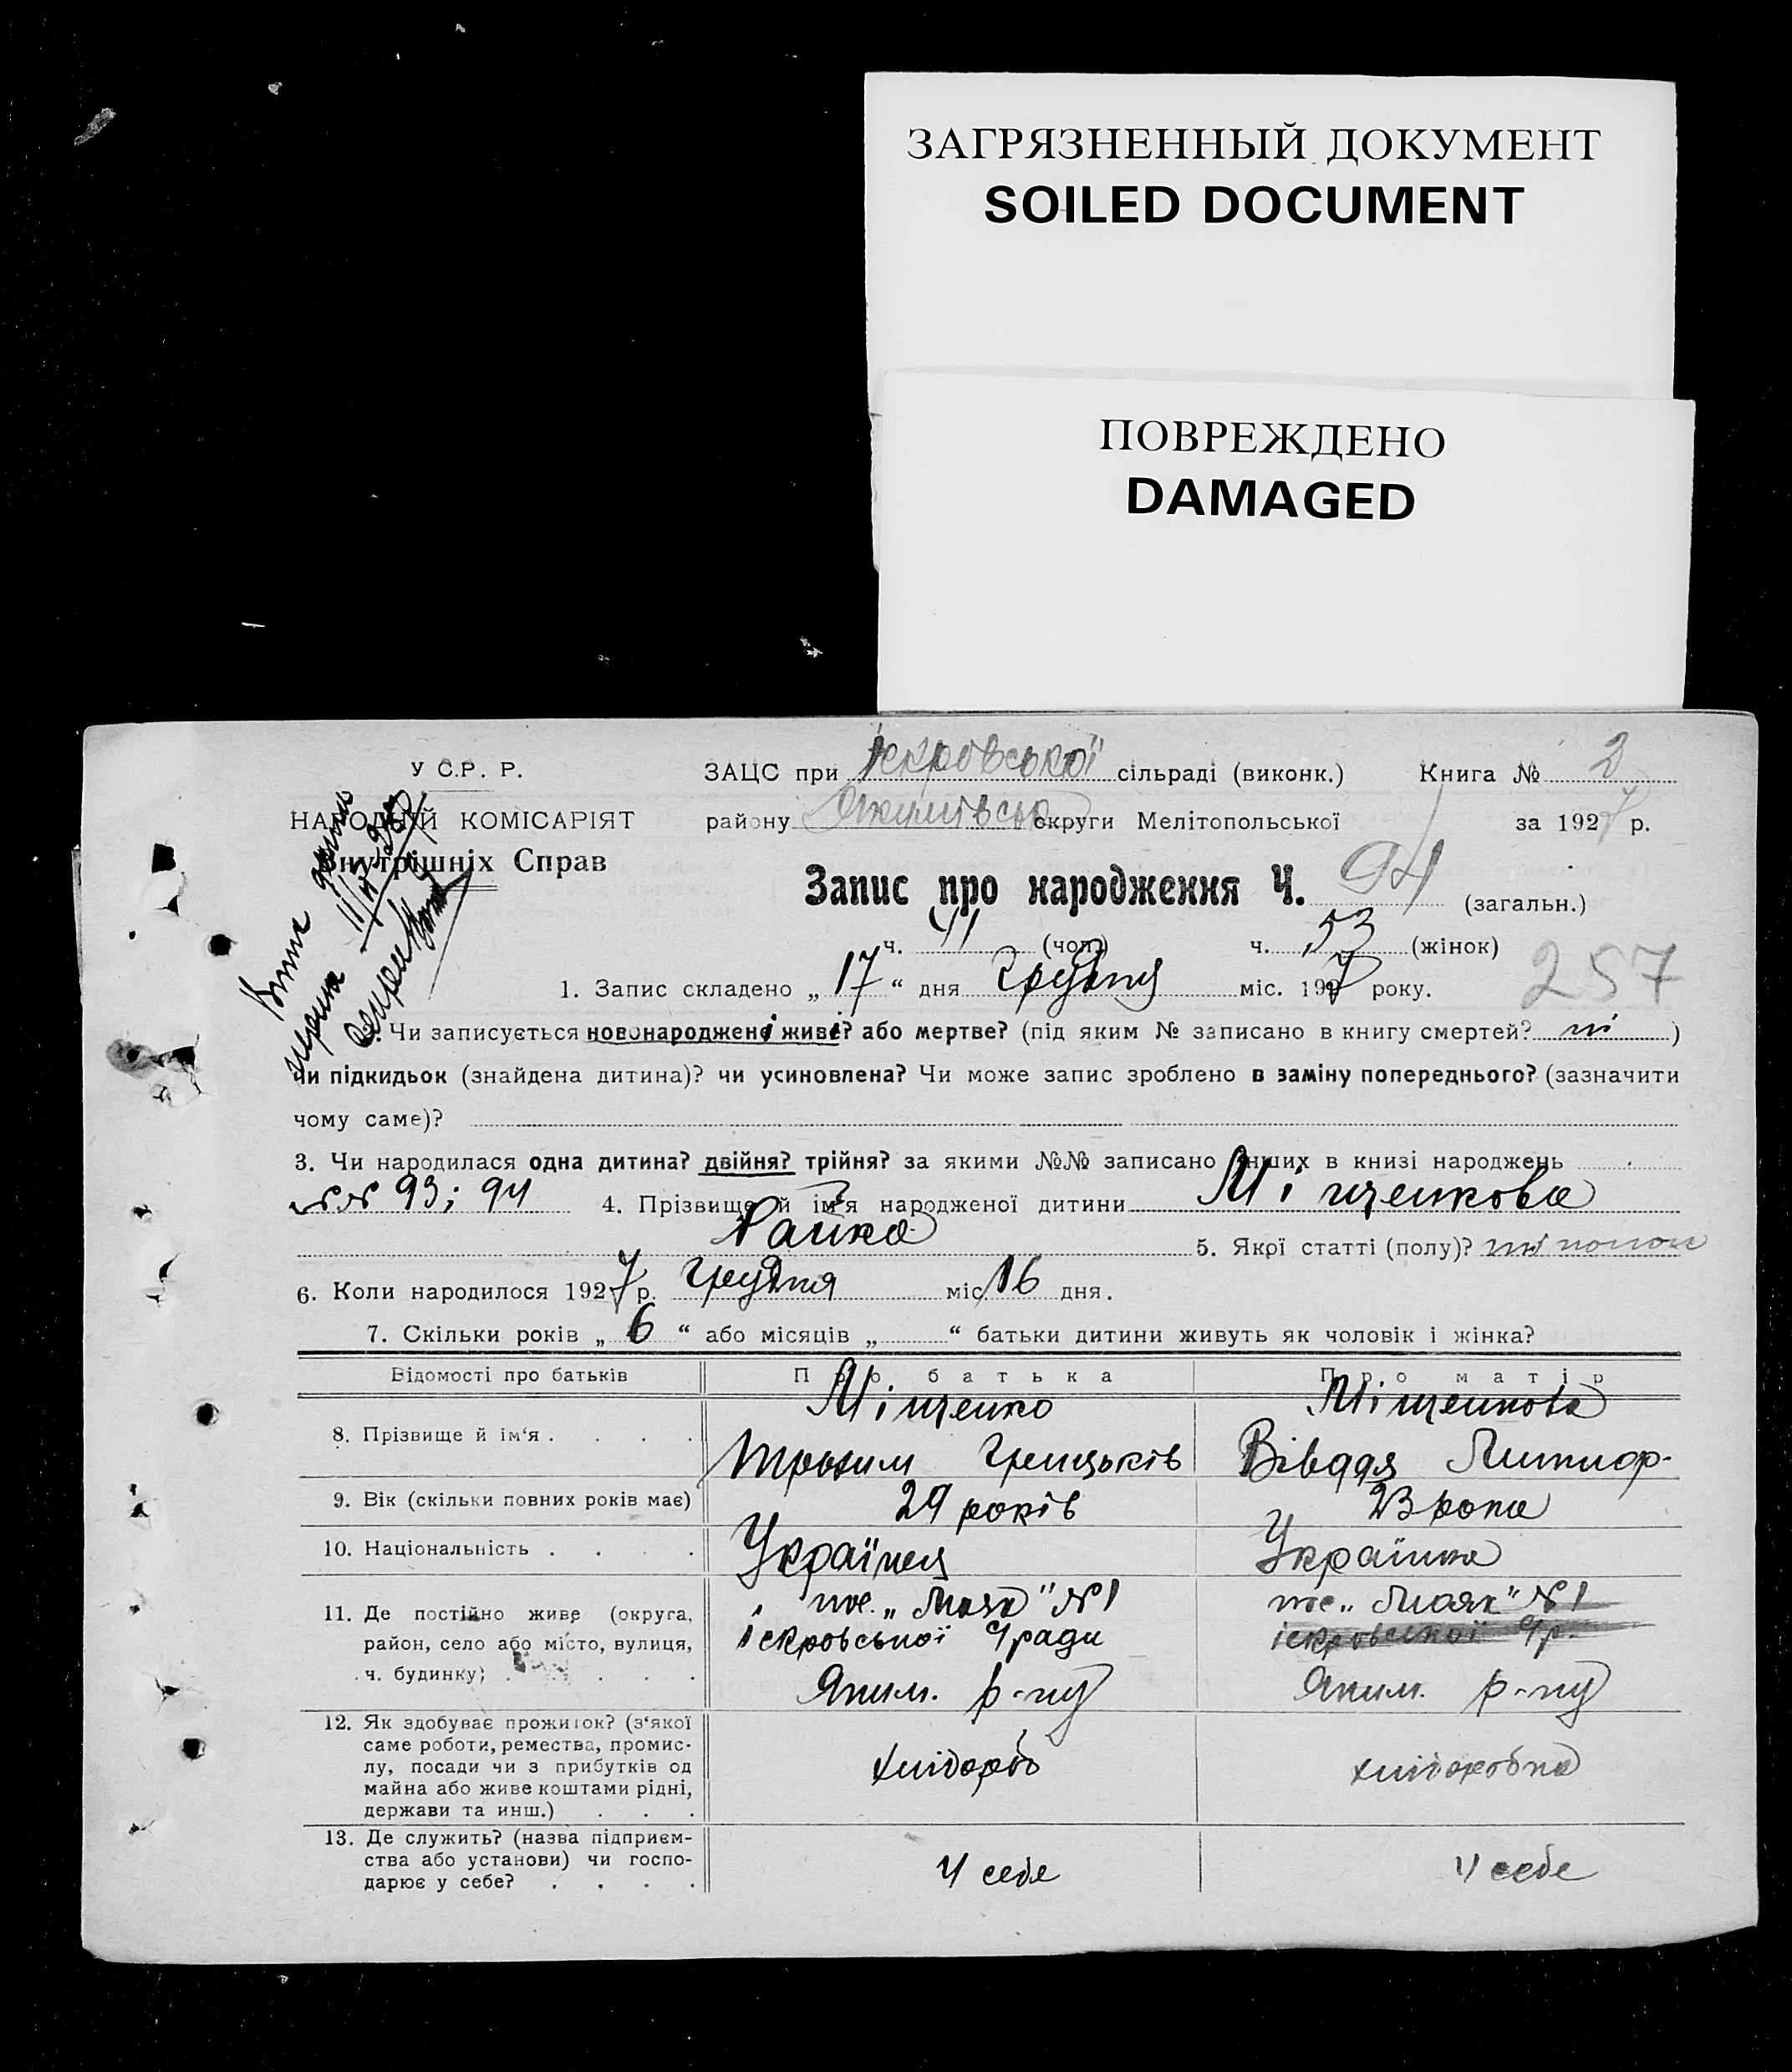 ЗАГРЯЗНЕННЫЙ ДОКУМЕНТ
SOILED DOCUMENT
ПОВРЕЖДЕНО
DAMAGED
У С.Р. Р.
НАРОДНІЙ КОМІСАРІЯТ
Внутрішніх Справ
ЗАЦС при Іскровської сільраді (виконк.) Книга № 2
району Якимівськ округи Мелітопольської за 1927 р.
Запис про народження Ч. 94 (загальн.)
ч. 41 (чол.) ч. 53 (жінок)
257
1. Запис складено „ 17 “ дня грудня міс. 1927 року.
2. Чи записується новонароджені живі? або мертве? (під яким № записано в книгу смертей? ні )
чи підкидьок (знайдена дитина)? чи усиновлена? Чи може запис зроблено в заміну попереднього? (зазначити
чому саме)?
3. Чи народилася одна дитина? двійня? трійня? за якими №№ записано інших в книзі народжень
№№ 93; 94 4. Прізвище й ім'я народженої дитини Міщенкова
Раїка 5. Якрї статті (полу)?
6. Коли народилося 1927 р. грудня міс. 16 дня.
7. Скільки років „ 6 “ або місяців „ “ батьки дитини живуть як чоловік і жінка?
Відомості про батьків Про батька Про матір
8. Прізвище й ім‘я . . . . Міщенко Міщенкова
Трохим Грицьків Вівддя
9. Вік (скільки повних років має) 29 років 23 рока
10. Національність . . . . Українец Українка
11. Де постійно живе (округа, тов. „Маяк" №1 тов. „Маяк" №1
район, село або місто, вулиця, іскровської С/ради іскровської С/р.
ч. будинку; . . . . . Яким. р-ну Яким. р-ну
12. Як здобуває прожиток? (з‘якої
саме роботи, ремества, промис-
лу, посади чи з прибутків од хлібороб хлібородка
майна або живе коштами рідні,
держави та инш.) . . .
13. Де служить? (назва підприєм-
ства або установи) чи госпо- У себе У себе
дарює у себе? . . . .